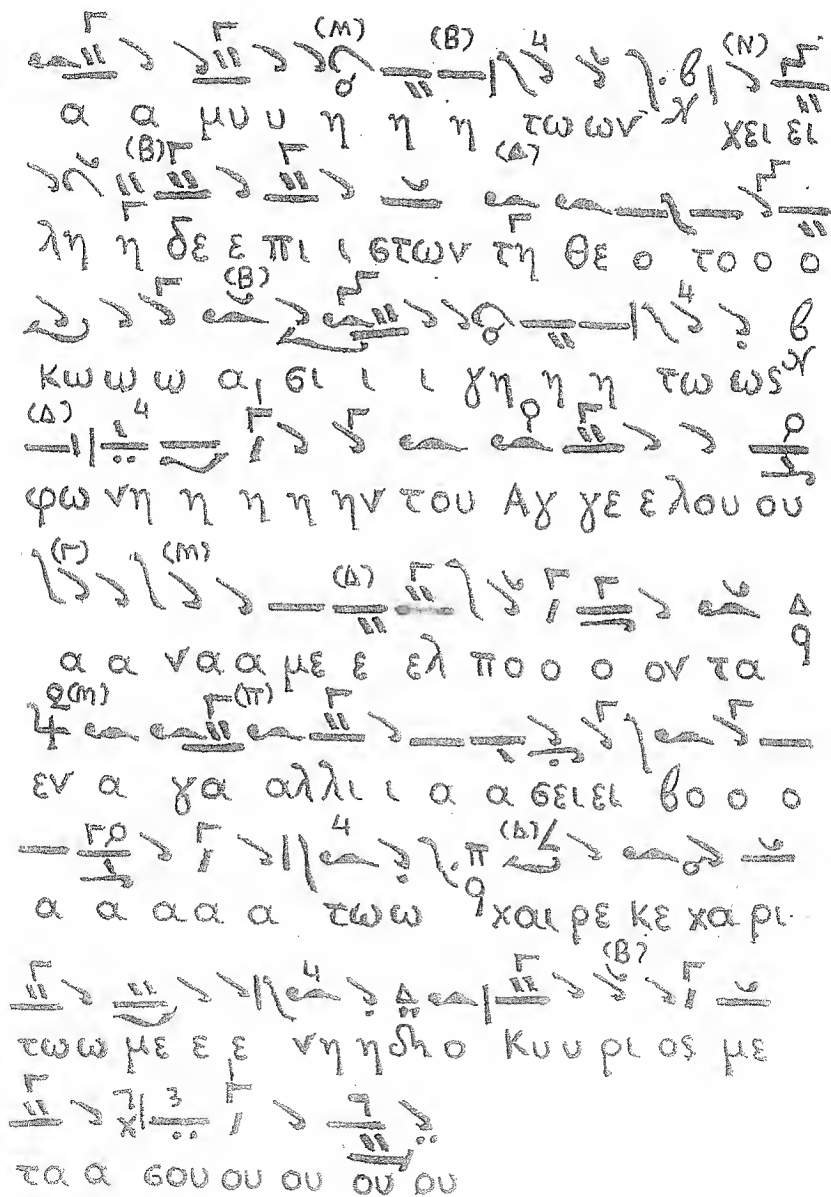 (Μ) (Β) 4 β (Ν)
α α μυ υ η η η τω ων χει ει
(Β) (Δ)
λη η δε ε πι ι στων τη θε ο το ο ο
(Β) 4 β
κω ω ω ω α σι ι ι γη η η τω ως
(Δ) 4
φω νη η η η ην του Αγ γε ε λου ου
(Γ) (Μ) (Δ) Δ
α α να α με ε ελ πο ο ο ον τα
(Μ) (Π)
εν α γα αλλι ι α α σει ει βο ο ο
4 π (Δ)
α α α α α τω ω χαι ρε κε χα ρι
4 Δ (Β)
τω ω με ε ε νη η ο Κυ υ ρι ος με
3
τα α σου ου ου ου ου